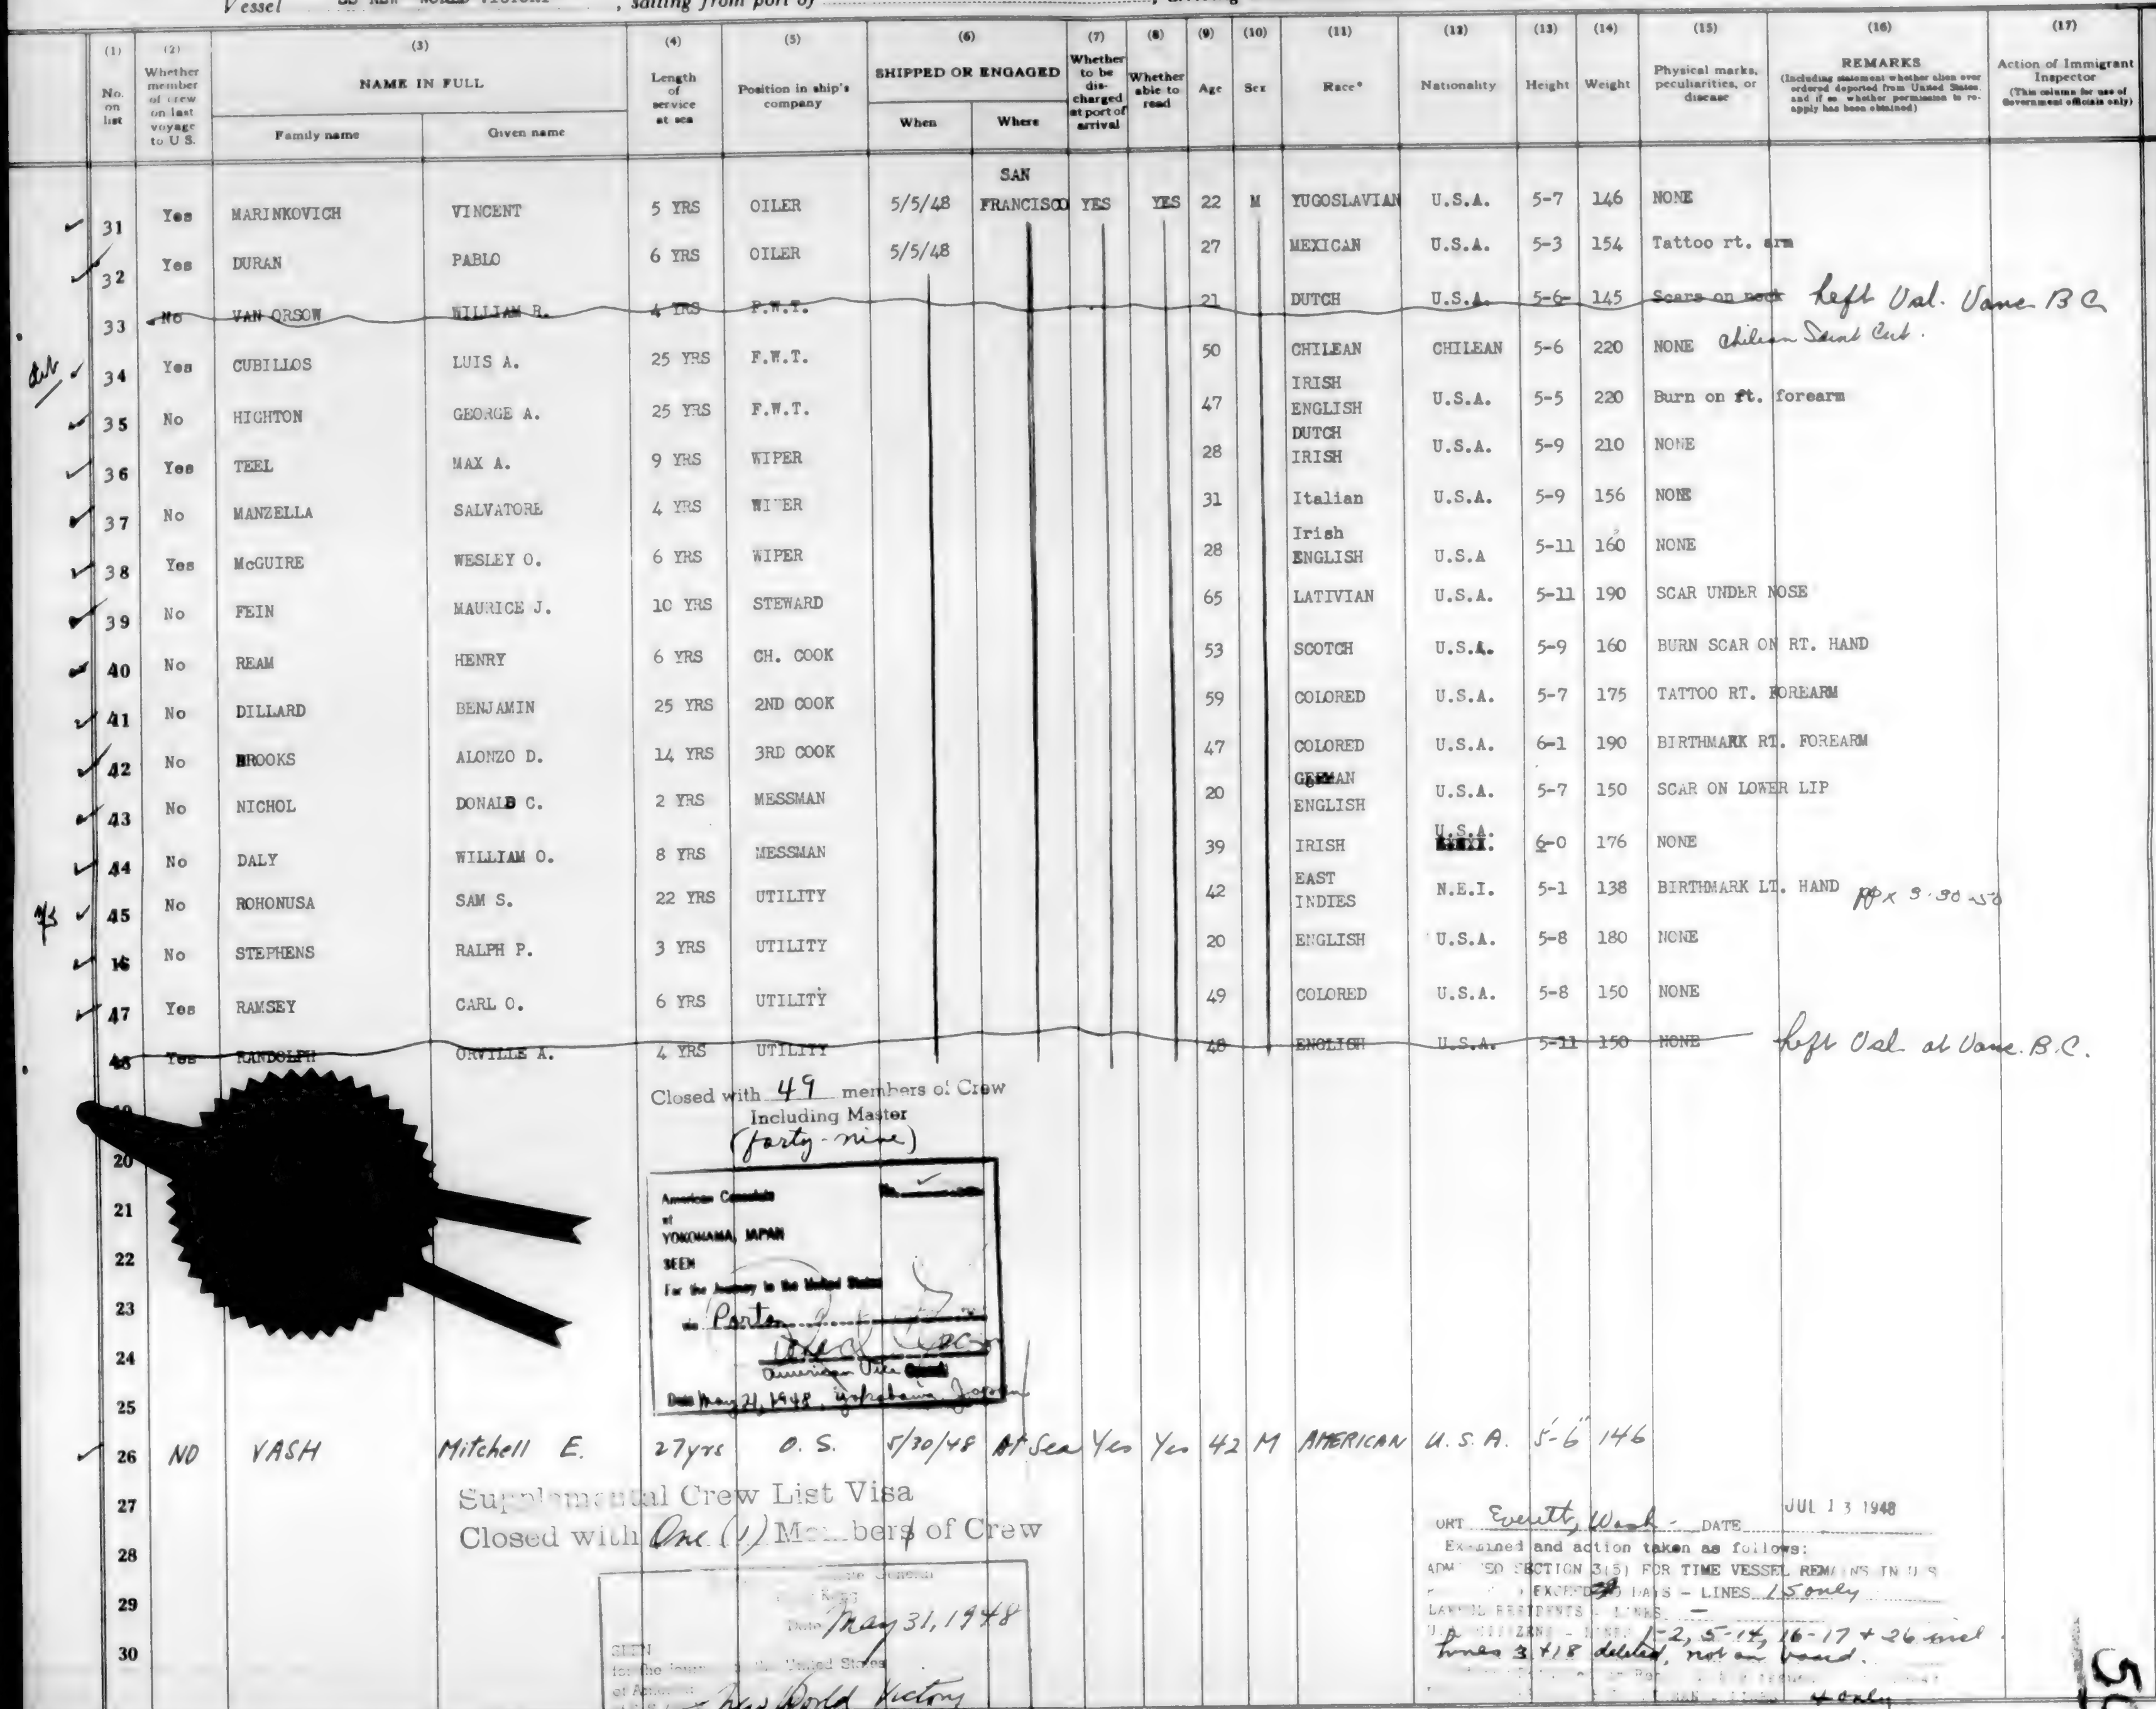 Vessel SS NEW WORLD VICTORY, sailing from port of
(1) No. on list
(2) Whether member of crew on last voyage to U S.
(3) NAME IN FULL Family name Given name
(4) Length of service at sea
(5) Position in ship's company
(6) SHIPPED OR ENGAGED When Where
(7) Whether to be discharged at port of arrival
(8) Whether able to read
(9) Age
(10) Sex
(11) Race*
(12) Nationality
(13) Height
(14) Weight
(15) Physical marks, peculiarities, or disease
(16) REMARKS (Including statement whether alien ever ordered deported from United States, and if so whether permission to re-apply has been obtained)
(17) Action of Immigrant Inspector (This column for use of Government officials only)
31 Yes MARINKOVICH VINCENT 5 YRS OILER 5/5/48 SAN FRANCISCO YES YES 22 M YUGOSLAVIAN U.S.A. 5-7 146 NONE
32 Yes DURAN PABLO 6 YRS OILER 5/5/48 27 MEXICAN U.S.A. 5-3 154 Tattoo rt. arm
33 No VAN ORSOW WILLIAM R. 4 YRS F.W.T. 21 DUTCH U.S.A. 5-6 145 Scars on neck Left Vsl. Vanc B C
34 Yes CUBILLOS LUIS A. 25 YRS F.W.T. 50 CHILEAN CHILEAN 5-6 220 NONE Chilean
35 No HIGHTON GEORGE A. 25 YRS F.W.T. 47 IRISH ENGLISH U.S.A. 5-5 220 Burn on rt. forearm
36 Yes TEEL MAX A. 9 YRS WIPER 28 DUTCH IRISH U.S.A. 5-9 210 NONE
37 No MANZELLA SALVATORE 4 YRS WIPER 31 Italian U.S.A. 5-9 156 NONE
38 Yes McGUIRE WESLEY O. 6 YRS WIPER 28 Irish ENGLISH U.S.A 5-11 160 NONE
39 No FEIN MAURICE J. 10 YRS STEWARD 65 LATIVIAN U.S.A. 5-11 190 SCAR UNDER NOSE
40 No REAM HENRY 6 YRS CH. COOK 53 SCOTCH U.S.A. 5-9 160 BURN SCAR ON RT. HAND
41 No DILLARD BENJAMIN 25 YRS 2ND COOK 59 COLORED U.S.A. 5-7 175 TATTOO RT. FOREARM
42 No BROOKS ALONZO D. 14 YRS 3RD COOK 47 COLORED U.S.A. 6-1 190 BIRTHMARK RT. FOREARM
43 No NICHOL DONALD C. 2 YRS MESSMAN 20 GERMAN ENGLISH U.S.A. 5-7 150 SCAR ON LOWER LIP
44 No DALY WILLIAM O. 8 YRS MESSMAN 39 IRISH U.S.A. 6-0 176 NONE
45 No ROHONUSA SAM S. 22 YRS UTILITY 42 EAST INDIES N.E.I. 5-1 138 BIRTHMARK LT. HAND PP x 3-30-50
16 No STEPHENS RALPH P. 3 YRS UTILITY 20 ENGLISH U.S.A. 5-8 180 NONE
47 Yes RAMSEY CARL O. 6 YRS UTILITY 49 COLORED U.S.A. 5-8 150 NONE
48 Yes RANDOLPH ORVILLE A. 4 YRS UTILITY 48 ENGLISH U.S.A. 5-11 150 NONE Left Vsl at Vanc. B.C.
Closed with 49 members of Crew
Including Master
(forty-nine)
19
20
21
22
23
24
25
American Consulate
at
YOKOHAMA, JAPAN
SEEN
For the Journey to the United States
via Ports
American Vice Consul
Date May 21, 1948, Yokohama Japan
26 NO VASH Mitchell E. 27yrs O. S. 5/30/48 At Sea Yes Yes 42 M AMERICAN U. S. A. 5'-6" 146
27
28
29
30
Supplemental Crew List Visa
Closed with One (1) Members of Crew
Date May 31, 1948
SEEN
for the journey to the United States
New World Victory
PORT Everett, Wash - DATE JUL 13 1948
Examined and action taken as follows:
ADMITTED SECTION 3(5) FOR TIME VESSEL REMAINS IN U S
EXCEED DAYS - LINES 15 only
LAWFUL RESIDENTS - LINES -
U.S. CITIZENS - LINES 1-2, 5-14, 16-17 + 26 incl.
Lines 3 + 18 deleted, not on board.
4 only